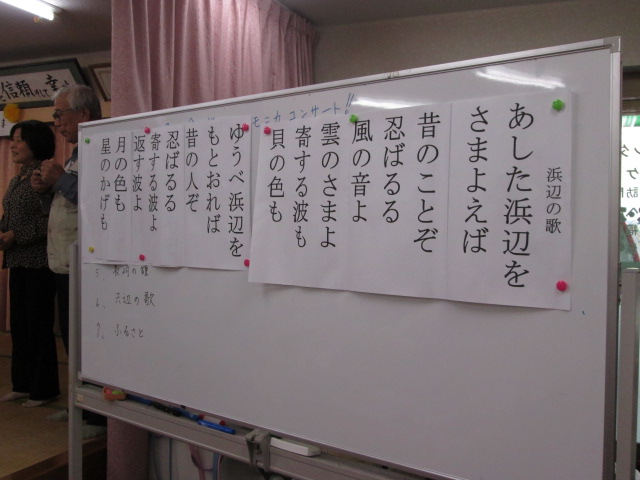 浜辺の歌
あした浜辺を
さまよえば
昔のことぞ
忍ばるる
風の音よ
雲のさまよ
寄する波も
貝の色も
ゆうべ浜辺を
もとおれば
昔の人ぞ
忍ばるる
寄する波よ
返す波よ
月の色も
星のかげも
モニカ コンサート!!
の歌
7、ふるさと
信頼